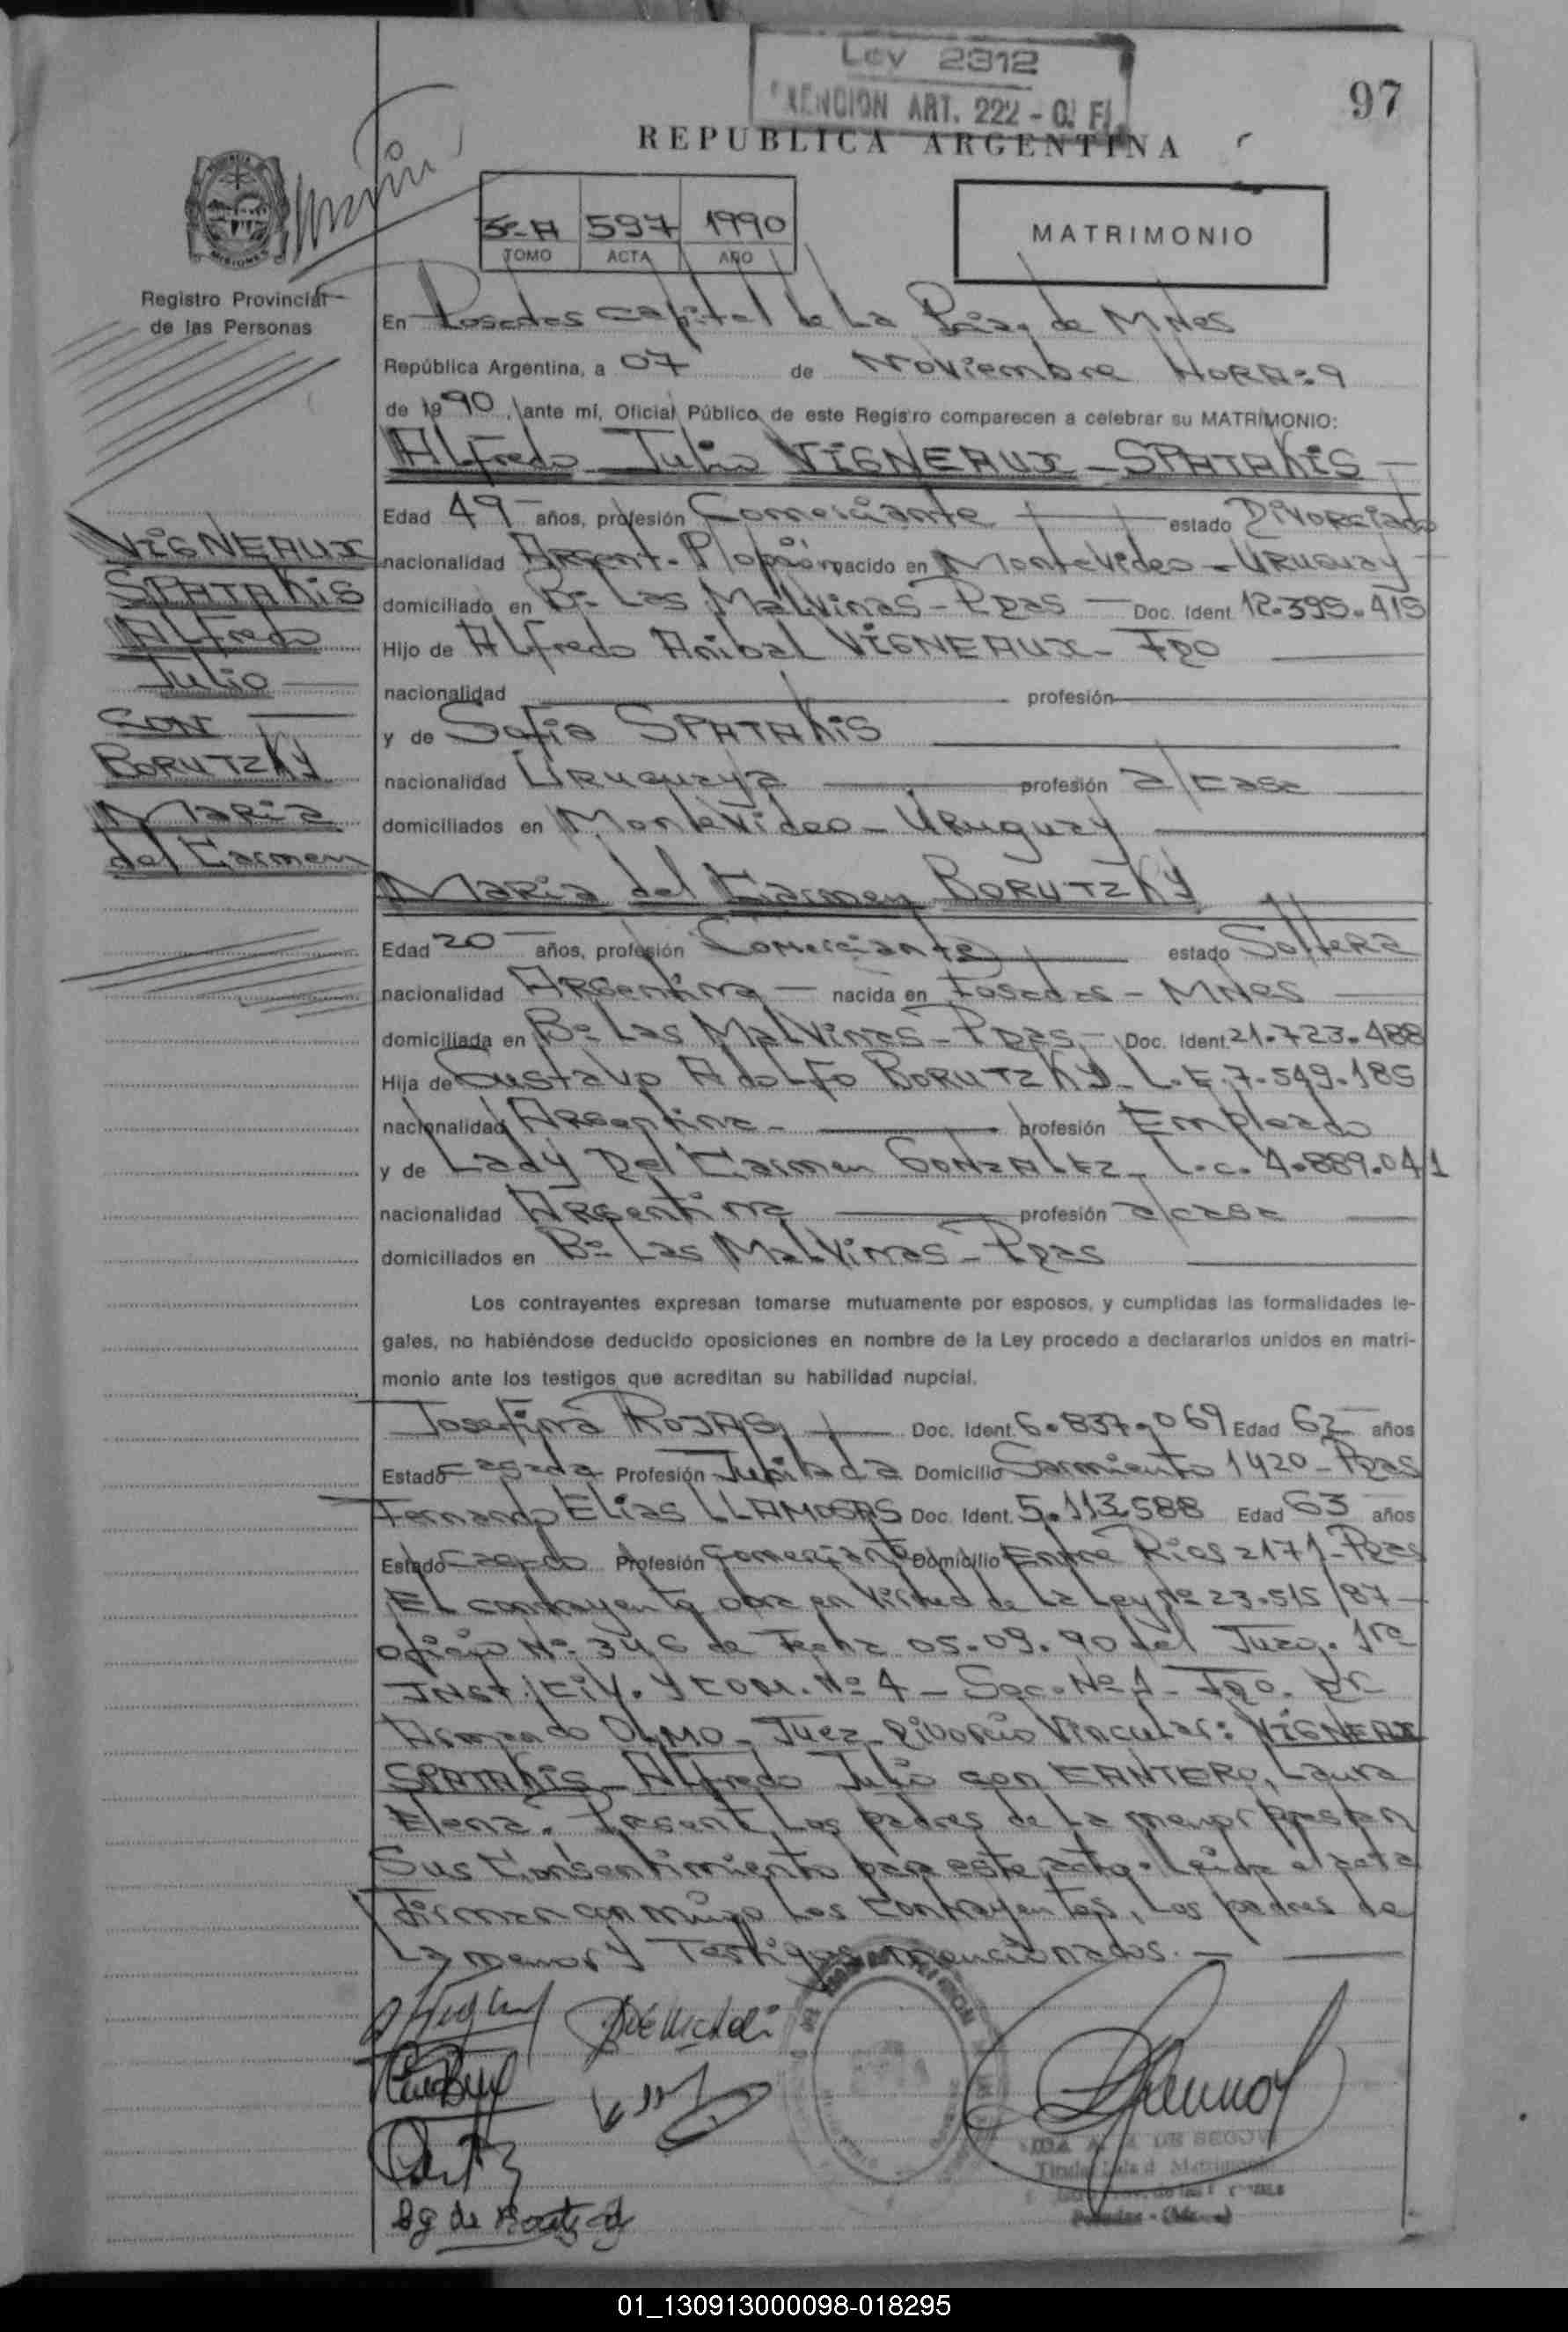 Ley 2312
97
REPUBLICA ARGENTINA
3º-A 597 1990
TOMO ACTA AÑO
MATRIMONIO
Registro Provincial
de las Personas
En Posadas Capital de La Pcia. de MNes
República Argentina, a 07 de Noviembre HORA: 9
de 1990, ante mí, Oficial Público de este Registro comparecen a celebrar su MATRIMONIO:
Alfredo Julio VIGNEAUX - SPATAKIS
Edad 49 años, profesión Comerciante estado Divorciado
nacionalidad Argent. P/opción nacido en Montevideo - URUGUAY
domiciliado en Bº Las Malvinas - Pdas Doc. Ident. 12.395.415
Hijo de Alfredo Anibal VIGNEAUX - Fdo
nacionalidad profesión
y de Sofia SPATAKIS
nacionalidad Uruguaya profesión a/casa
domiciliados en Montevideo - Uruguay
VIGNEAUX
SPATAKIS
Alfredo
Julio
CON
BORUTZKY
Maria
del Carmen
Maria del Carmen BORUTZKY
Edad 20 años, profesión Comerciante estado Soltera
nacionalidad Argentina nacida en Posadas - MNes
domiciliada en Bº Las Malvinas - Pdas Doc. Ident. 21.723.488
Hija de Gustavo Adolfo BORUTZKY - L.E. 7.549.185
nacionalidad Argentina - profesión Empleado
y de Lady Del Carmen GONZALEZ - L.C. 4.889.041
nacionalidad Argentina profesión a/casa
domiciliados en Bº Las Malvinas - Pdas
Los contrayentes expresan tomarse mutuamente por esposos, y cumplidas las formalidades le-
gales, no habiéndose deducido oposiciones en nombre de la Ley procedo a declararlos unidos en matri-
monio ante los testigos que acreditan su habilidad nupcial.
Josefina ROJAS Doc. Ident. 6.837.069 Edad 62 años
Estado casada Profesión Jubilada Domicilio Sarmiento 1420 - Pdas
Fernando Elias LLAMOSAS Doc. Ident. 5.113.588 Edad 63 años
Estado casado Profesión Comerciante Domicilio Entre Rios 2171 - Pdas
El contrayente obra en virtud de la Ley Nº 23.515/87 -
oficio Nº 346 de Fecha 05.09.90 del Juzg. 1ra
Inst. Civ. y COM. Nº 4 - Sec. Nº 1 - Fdo. Dr
Armando OLMO - Juez - Divorcio Vincular: VIGNEAUX
SPATAKIS - Alfredo Julio con CANTERO, Laura
Elena. Presente Los padres de La menor prestan
Sus Consentimiento para este acto. Leida el acta
firman conmigo Los Contrayentes, Los padres de
La menor y Testigos mencionados.
DE SEGOV
Posadas
01_130913000098-018295